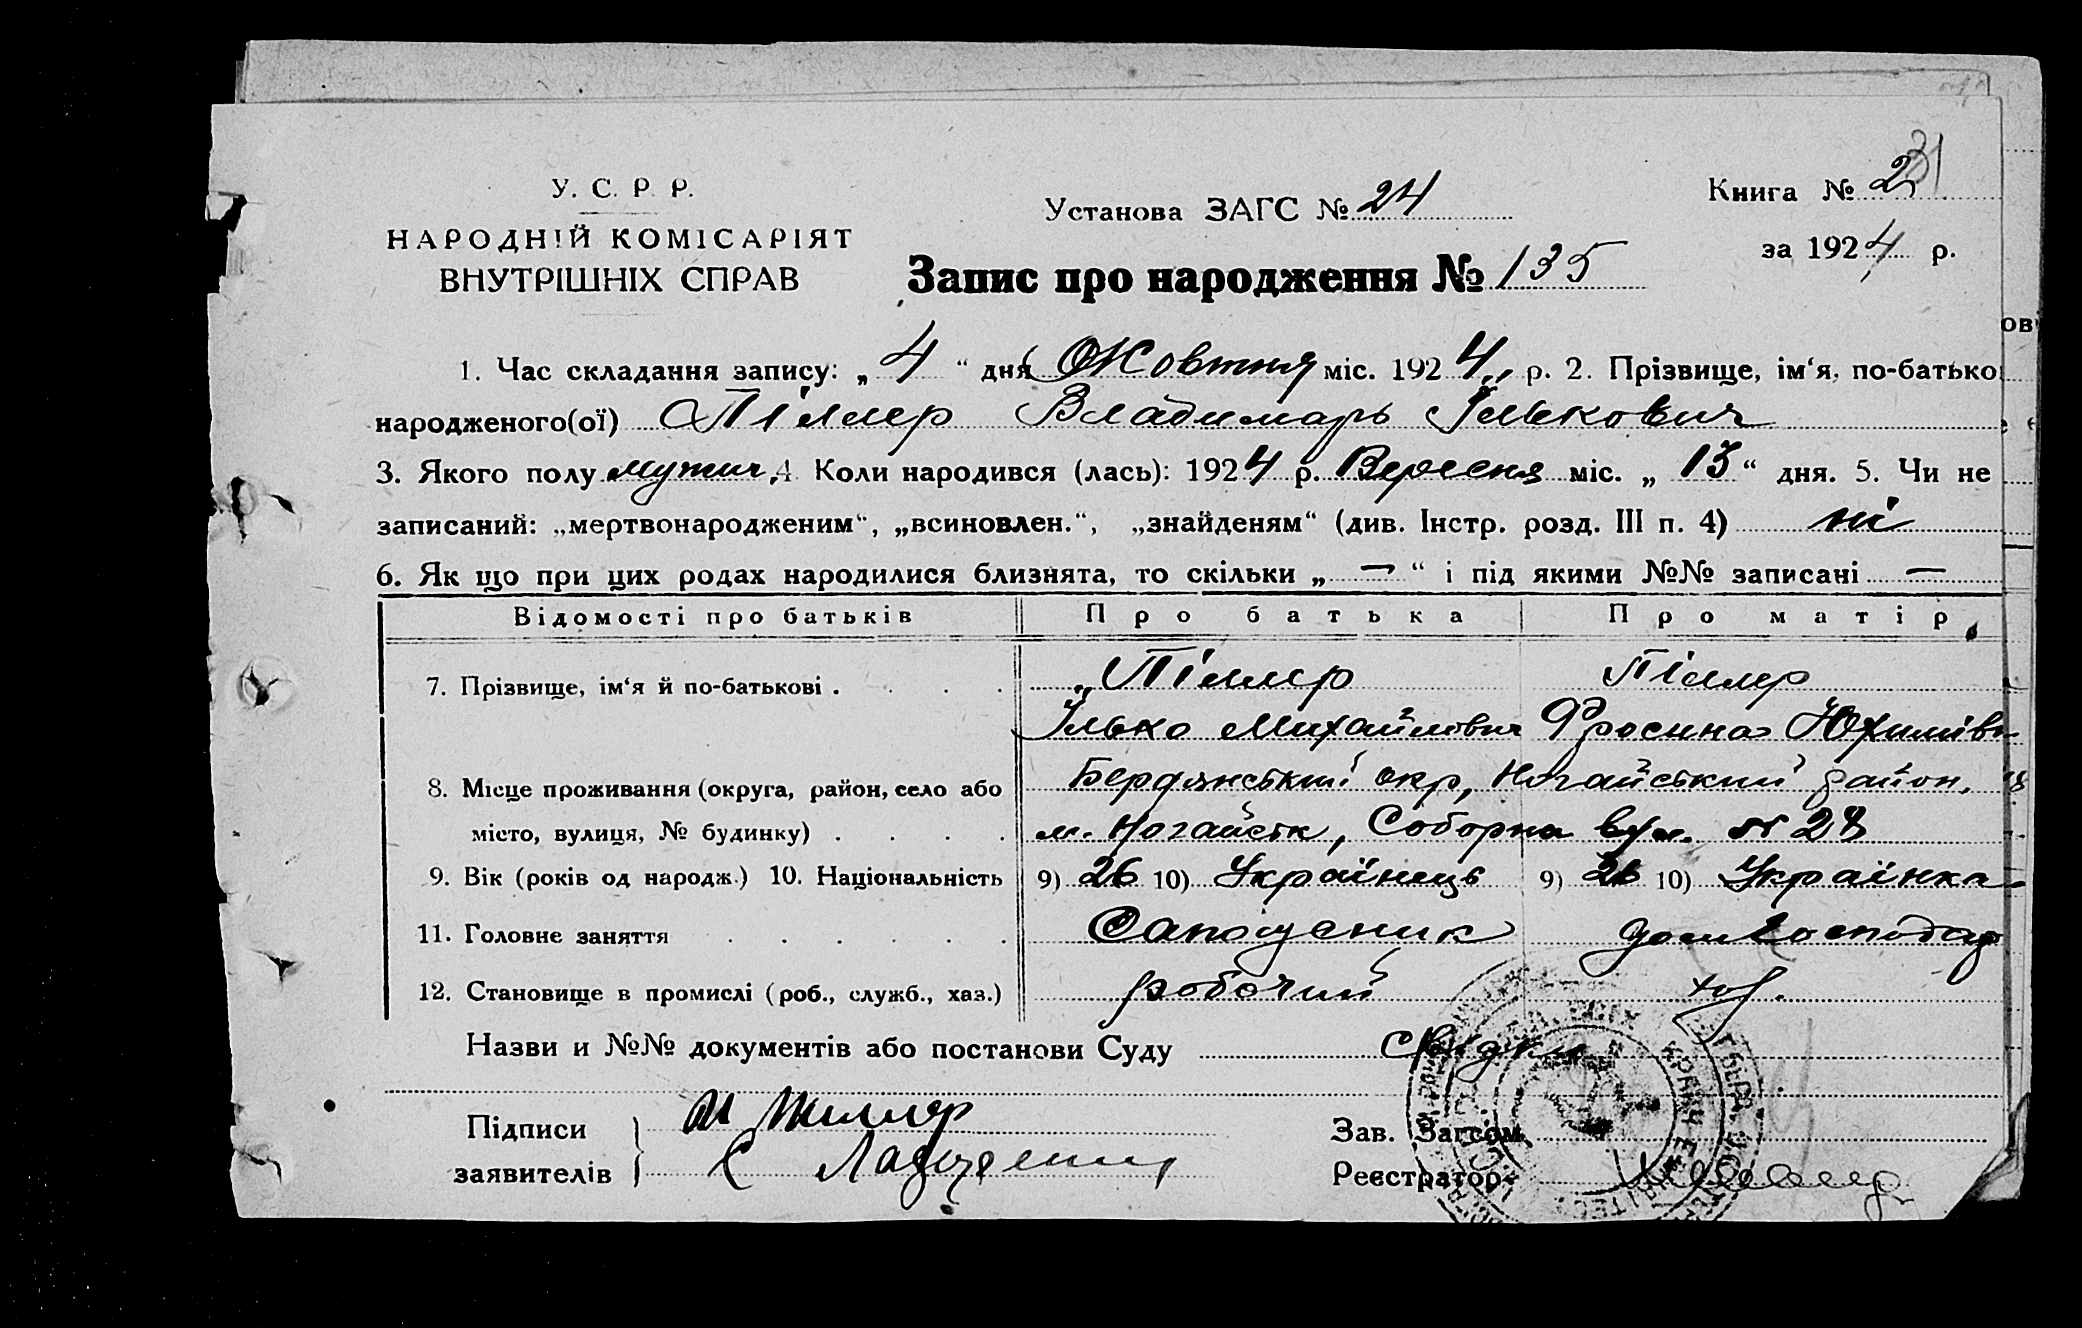 У. С. Р. Р.
НАРОДНІЙ КОМІСАРІЯТ
ВНУТРІШНІХ СПРАВ
Установа ЗАГС № 24
Книга № 2
31
за 1924 р.
Запис про народження № 135
1. Час складання запису: „ 4 “ дня Жовтня міс. 1924 р. 2. Прізвище, ім‘я, по-батько
народженого(ої) Піллер Владимарь Ількович
3. Якого полу мужич. 4 Коли народився (лась): 1924 р. Вересня міс. „ 13 “ дня. 5. Чи не
записаний: „мертвонародженим“, „всиновлен.“, „знайденям“ (див. Інстр. розд. III п. 4) ні
6. Як що при цих родах народилися близнята, то скільки „ — “ і під якими №№ записані —
Відомості про батьків Про батька Про матір
7. Прізвище, ім‘я й по-батькові . . . . Піллер Піллер
Ілько Михайлович Фросина Юхимівн
8. Місце проживання (округа, район, село або Бердянський окр, Ногайський район,
місто, вулиця, № будинку) . . . . м. Ногайськ, Соборна вул. № 28
9. Вік (років од народж.) 10. Національність 9) 26 10) Українець 9) 26 10) Українка
11. Головне заняття . . . . . . Сапожник домгосподар
12. Становище в промислі (роб., служб., хаз.) робочий
Назви и №№ документів або постанови Суду свідки
Підписи И Пиллер
заявителів
Зав. Загсом
Реєстратор